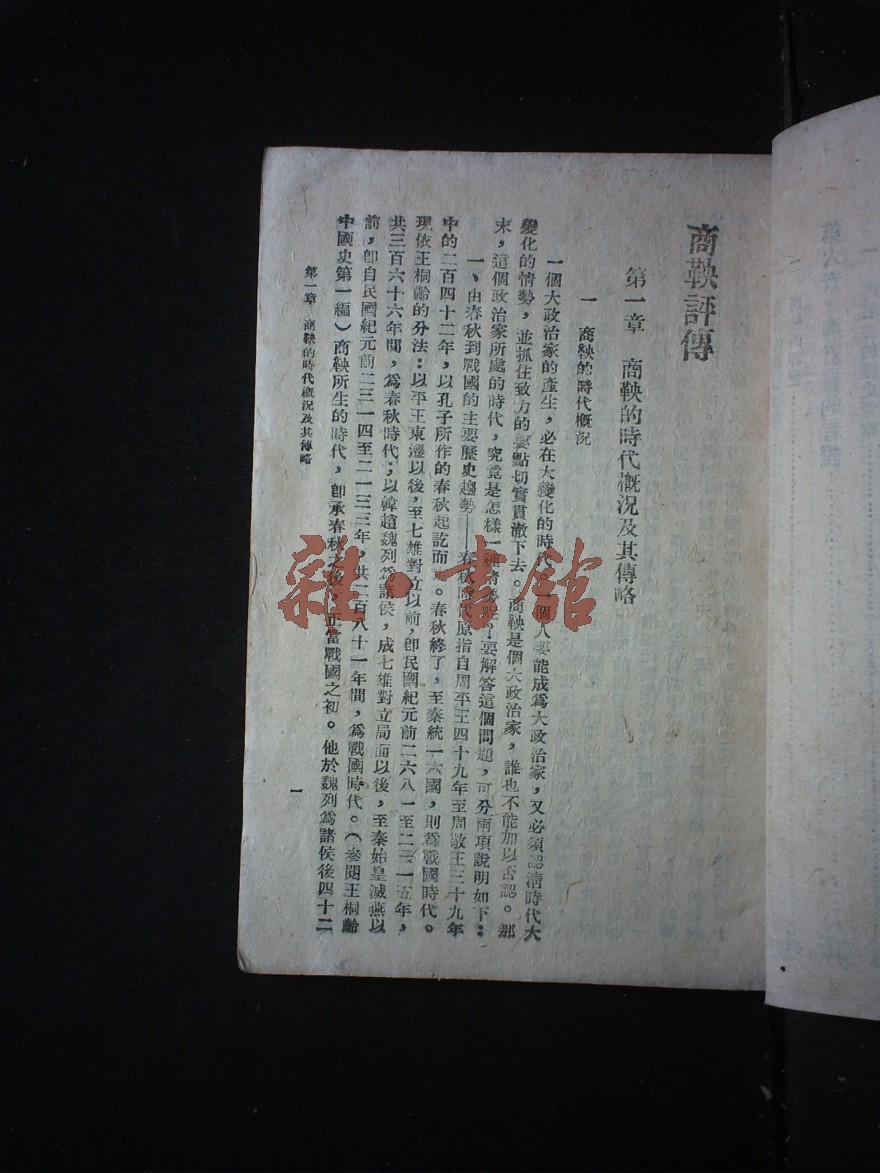 商鞅評傳
第一章　商鞅的時代概況及其傳略
一　商鞅的時代概況
一個大政治家的產生，必在大變化的時代，一個人要能成爲大政治家，又必須認清時代大
變化的情勢，並抓住致力的要點切實貫澈下去。商鞅是個大政治家，誰也不能加以否認。那
末，這個政治家所處的時代，究竟是怎樣一種情勢呢？要解答這個問題，可分兩項說明如下：
一、由春秋到戰國的主要歷史趨勢——春秋時代原指自周平王四十九年至周敬王三十九年
中的二百四十二年，以孔子所作的春秋起訖而
。春秋終了，至秦統一六國，則爲戰國時代。
現依王桐齡的分法：以平王東遷以後，至七雄對立以前，卽民國紀元前二六八一至二三一五年，
共三百六十六年間，爲春秋時代；以韓趙魏列爲諸侯，成七雄對立局面以後，至秦始皇滅燕以
前，卽自民國紀元前二三一四至二一三三年，共二百八十一年間，爲戰國時代。（參閱王桐齡
中國史第一編）商鞅所生的時代，卽承春秋之後，正當戰國之初。他於魏列爲諸侯後四十二
第一章　商鞅的時代概況及其傳略
一
雜·書館